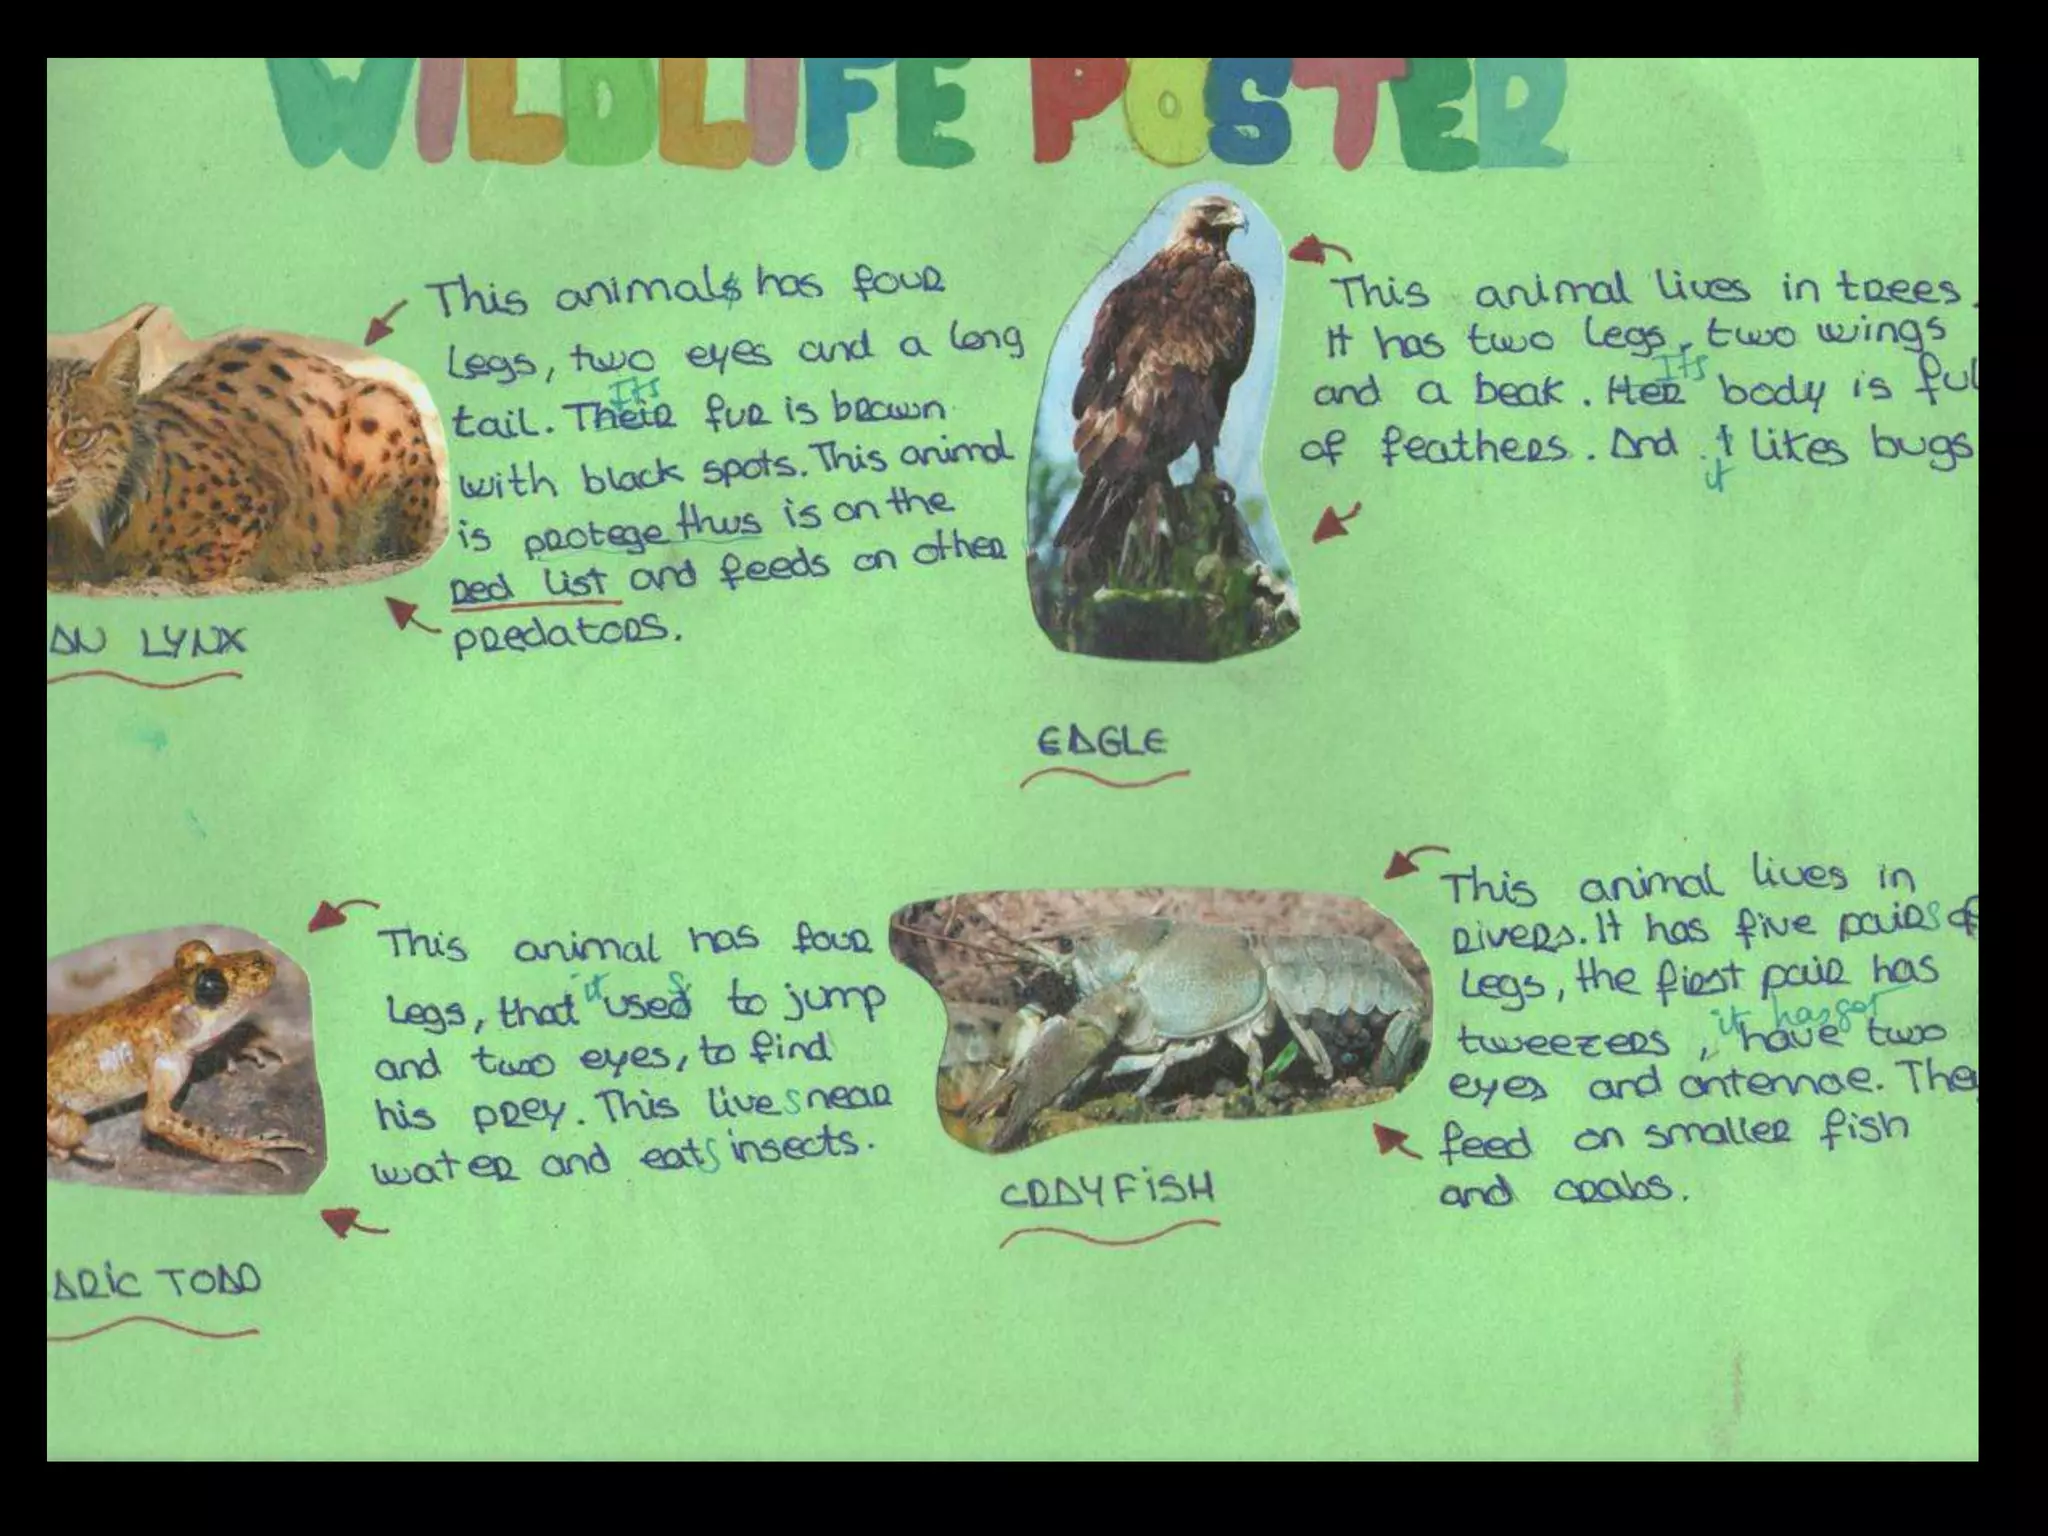 WILDLIFE POSTER
This animals has four
legs, two eyes and a long
Its
tail. Their fur is brown
with black spots. This animal
is protege thus is on the
red list and feeds on other
predators.
AN LYNX
This animal lives in trees.
It has two legs, two wings
Its
and a beak. Her body is ful
of feathers. And I likes bugs
it
EAGLE
This animal has four
it s
legs, that used to jump
and two eyes, to find
his prey. This lives near
water and eats insects.
ARIC TOAD
This animal lives in
rivers. It has five pairs of
legs, the first pair has
it has got
tweezers, have two
eyes and antennae. They
feed on smaller fish
and crabs.
CRAYFISH